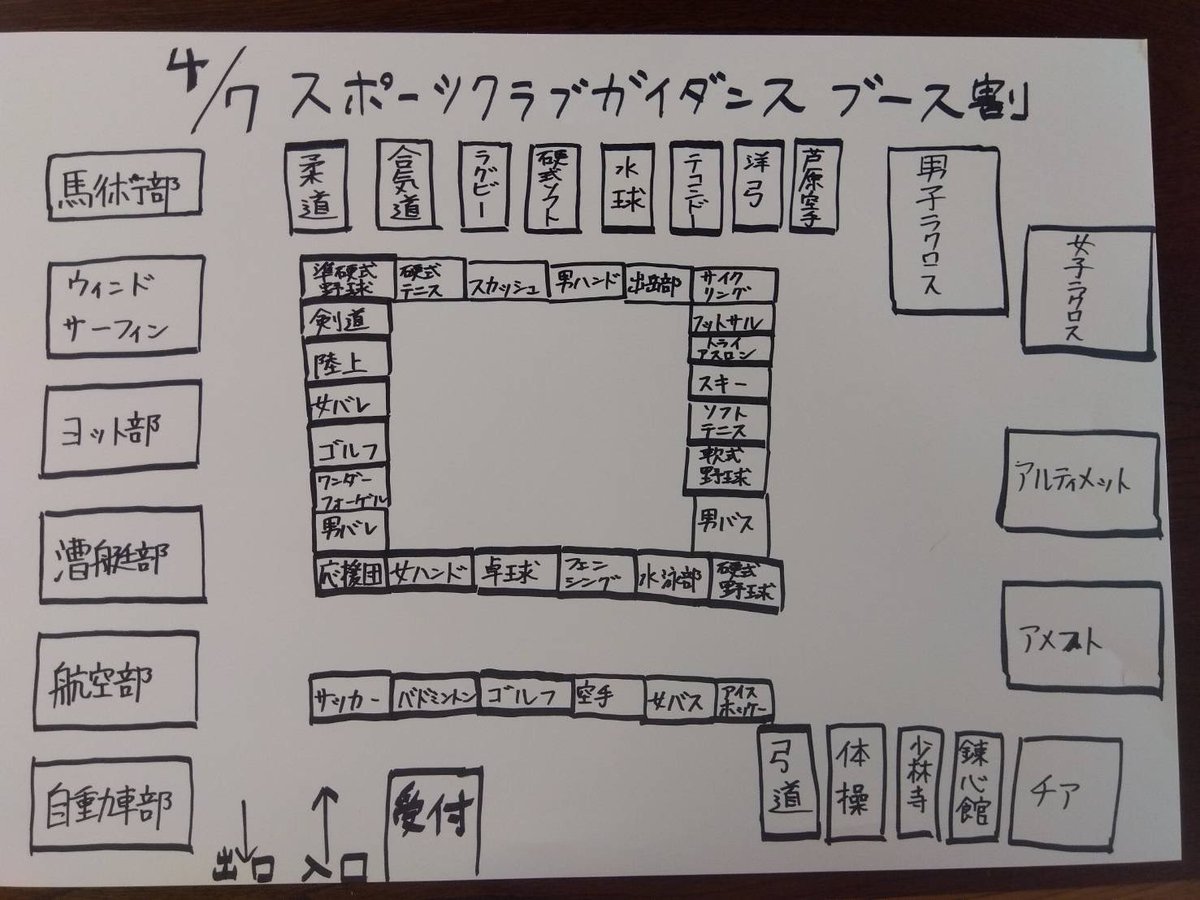 4/7 スポーツクラブガイダンス ブース割
馬術部
ウィンド
サーフィン
ヨット部
漕艇部
航空部
自動車部
柔道
合気道
ラグビー
硬式ソフト
水球
テコンドー
洋弓
芦原空手
男子ラクロス
女子ラクロス
アルティメット
アメフト
準硬式
野球
硬式
テニス
スカッシュ
男ハンド
山岳部
サイク
リング
剣道
陸上
女バレ
ゴルフ
ワンダー
フォーゲル
男バレ
フットサル
トライ
アスロン
スキー
ソフト
テニス
軟式
野球
男バス
応援団
女ハンド
卓球
フェン
シング
水泳部
硬式
野球
サッカー
バドミントン
ゴルフ
空手
女バス
アイス
ホッケー
弓道
体操
少林寺
錬心館
チア
出口
入口
受付